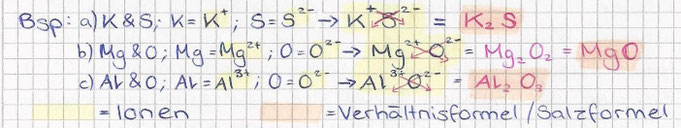 Bsp: a) K & S; K = K⁺; S = S²⁻ → K⁺ S²⁻ = K₂S
b) Mg & O; Mg = Mg²⁺; O = O²⁻ → Mg²⁺ O²⁻ = Mg₂O₂ = MgO
c) Al & O; Al = Al³⁺; O = O²⁻ → Al³⁺ O²⁻ = Al₂O₃
= Ionen = Verhältnisformel / Salzformel